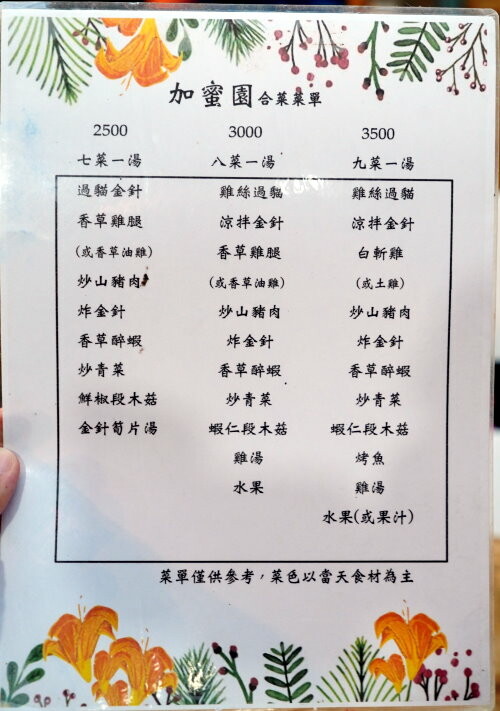 加蜜園 合菜菜單
2500
七菜一湯
過貓金針
香草雞腿
(或香草油雞)
炒山豬肉
炸金針
香草醉蝦
炒青菜
鮮椒段木菇
金針筍片湯
3000
八菜一湯
雞絲過貓
涼拌金針
香草雞腿
(或香草油雞)
炒山豬肉
炸金針
香草醉蝦
炒青菜
蝦仁段木菇
雞湯
水果
3500
九菜一湯
雞絲過貓
涼拌金針
白斬雞
(或土雞)
炒山豬肉
炸金針
香草醉蝦
炒青菜
蝦仁段木菇
烤魚
雞湯
水果(或果汁)
菜單僅供參考，菜色以當天食材為主